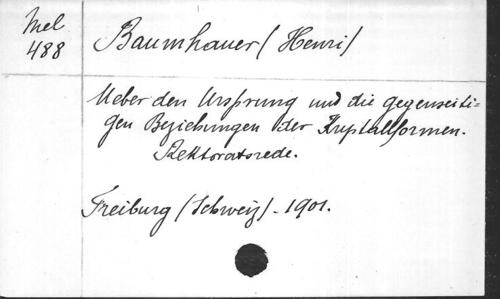 Mel
488
Baumhauer (Henri)
Ueber den Ursprung und die gegenseiti-
gen Beziehungen der Krystallformen.
Rektoratsrede.
Freiburg (Schweiz) - 1901.